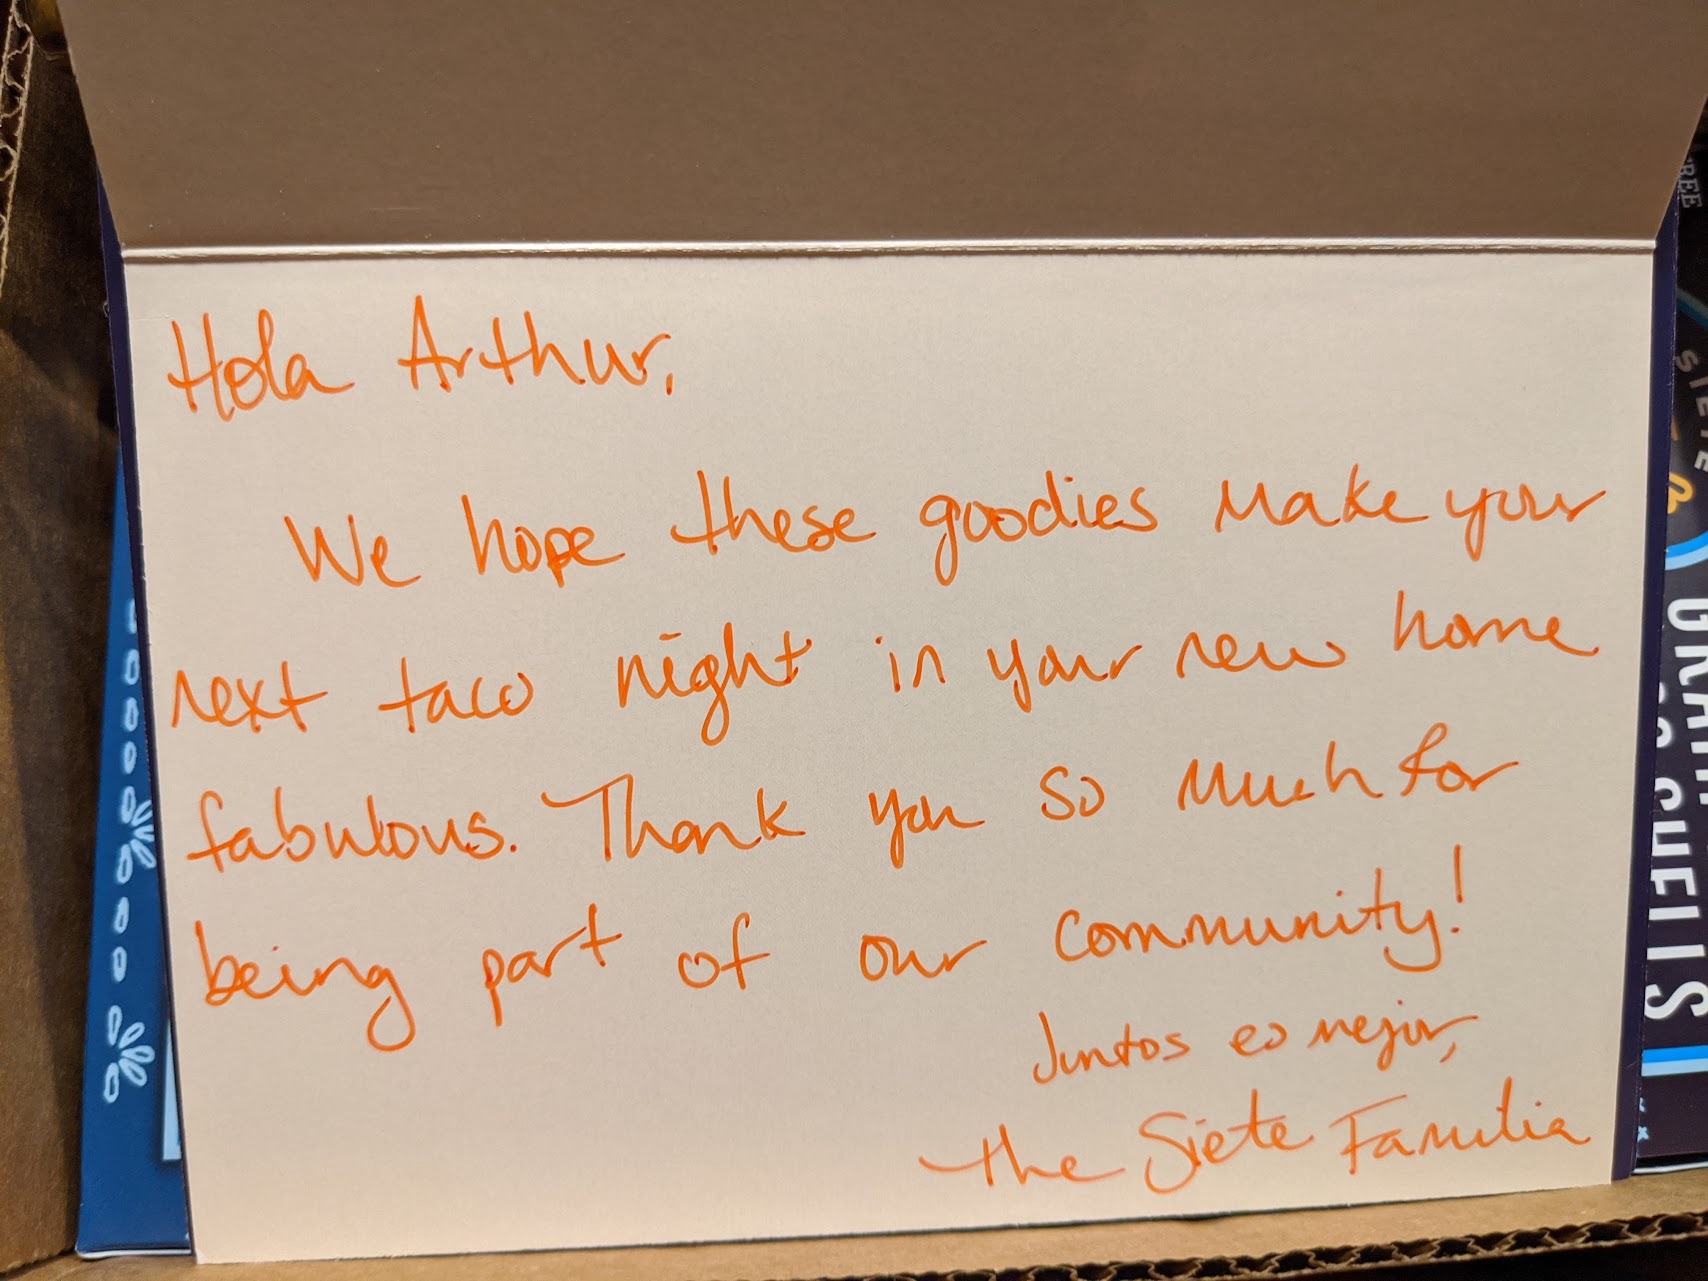 Hola Arthur,
We hope these goodies make your
next taco night in your new home
fabulous. Thank you so much for
being part of our community!
Juntos es mejor,
The Siete Familia
SIETE
SHELLS